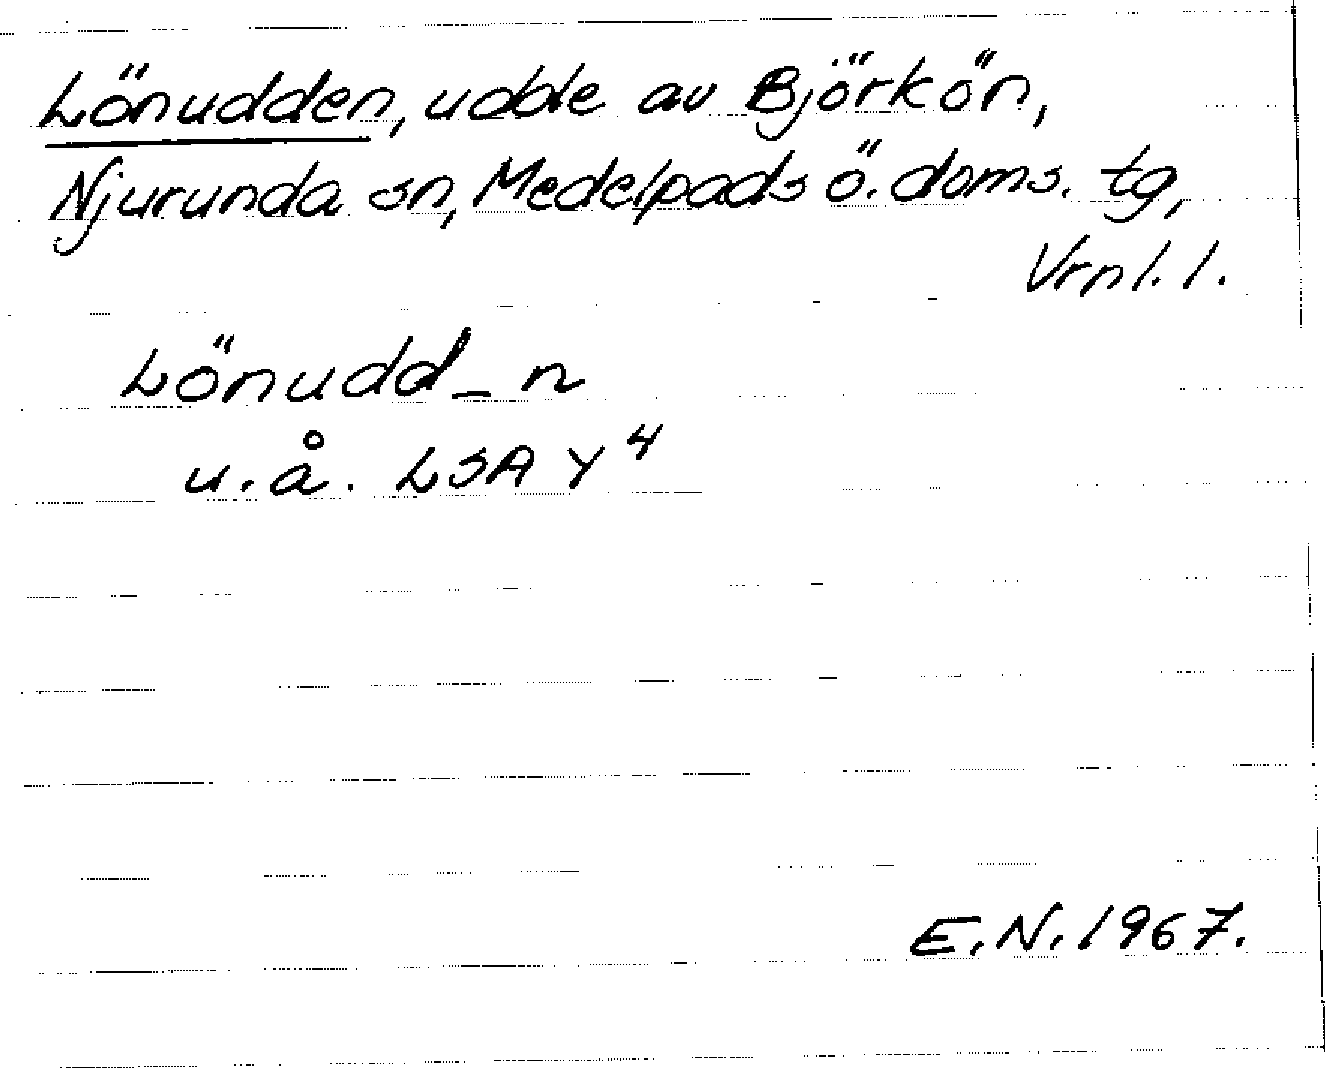 Lönudden, udde av Björkön,
Njurunda sn, Medelpads ö. doms. tg,
Vrnl. l.
Lönudd_n
u. å. LSA Y⁴
E.N. 1967.